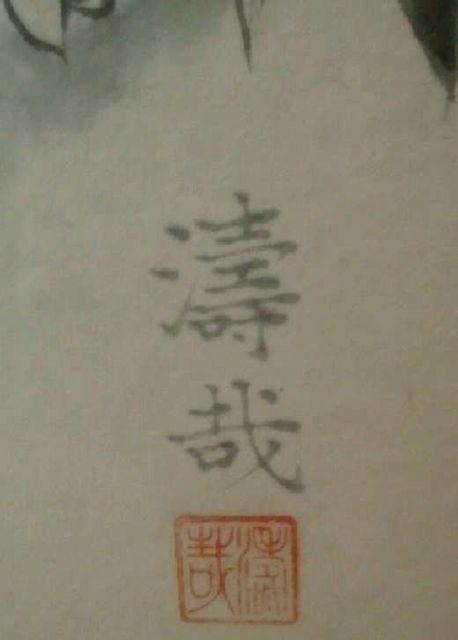 濤
哉
濤哉